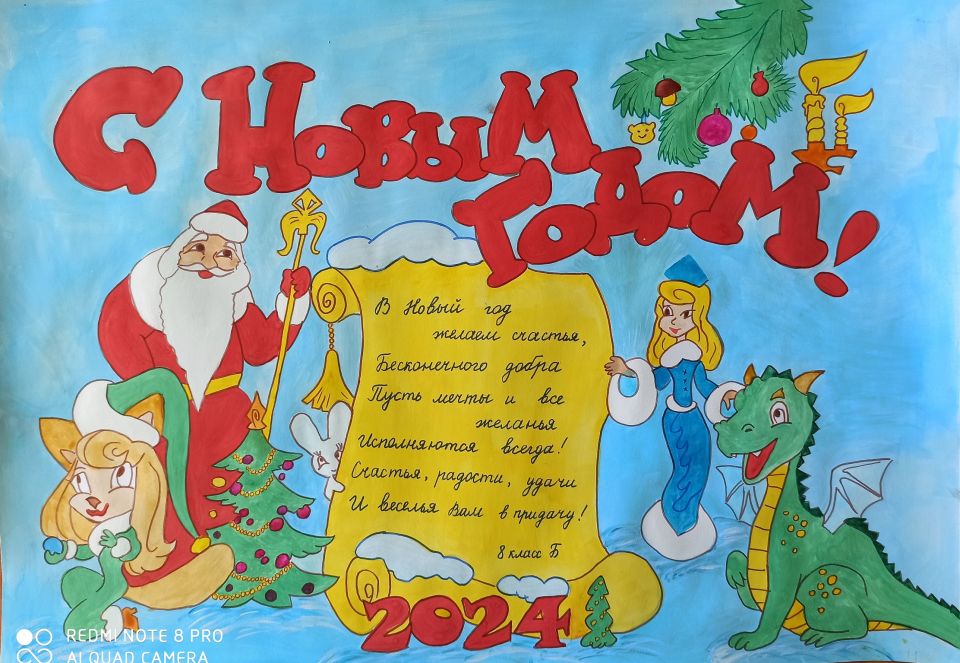 С Новым
Годом!
В Новый год
желаем счастья,
Бесконечного добра
Пусть мечты и все
желанья
Исполняются всегда!
Счастья, радости, удачи
И веселья Вам в придачу!
8 класс Б
2024
REDMI NOTE 8 PRO
AI QUAD CAMERA